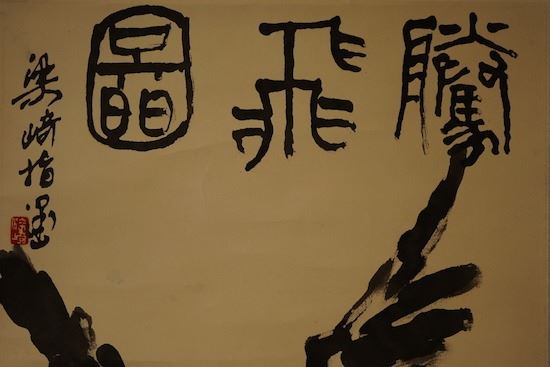 騰飛圖
梁崎指墨